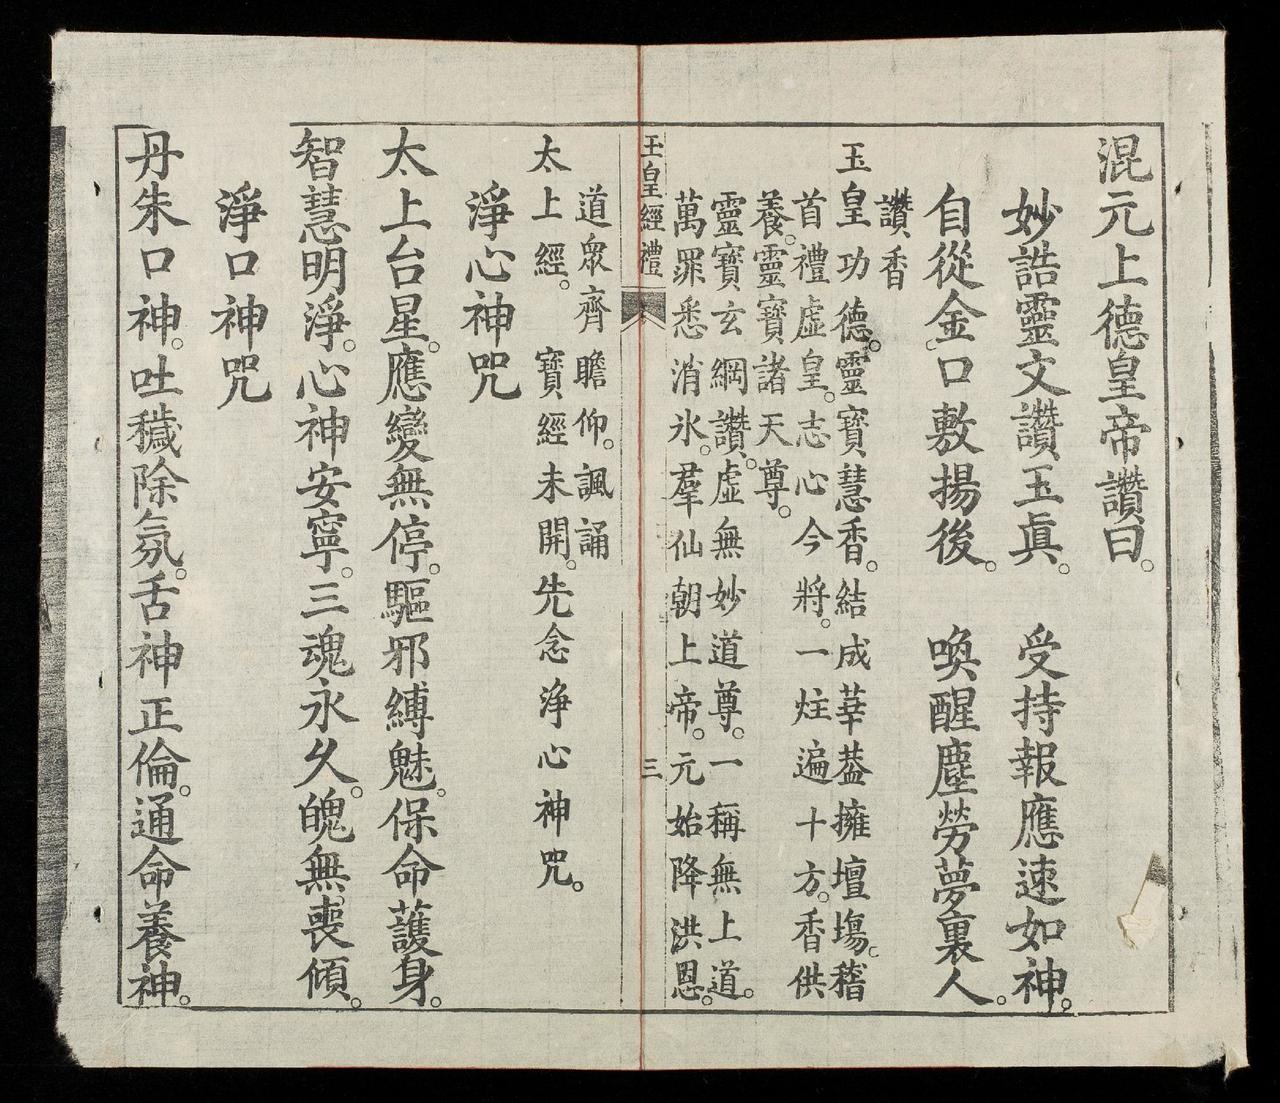 混元上德皇帝讚曰。
妙誥靈文讚玉眞。　受持報應速如神。
自從金口敷揚後。　喚醒塵勞夢裏人。
讚香
玉皇功德。靈寶慧香。結成華葢擁壇塲。稽
首禮虛皇。志心今將。一炷遍十方。香供
養。靈寶諸天尊。
靈寶玄綱讚。虛無妙道尊。一稱無上道。
萬罪悉消氷。羣仙朝上帝。元始降洪恩。
玉皇經禮　三
道眾齊瞻仰。諷誦
太上經。　寶經未開。先念淨心神咒。
淨心神咒
太上台星。應變無停。驅邪縛魅。保命護身。
智慧明淨。心神安寧。三魂永久。魄無喪傾。
淨口神咒
丹朱口神。吐穢除氛。舌神正倫。通命養神。